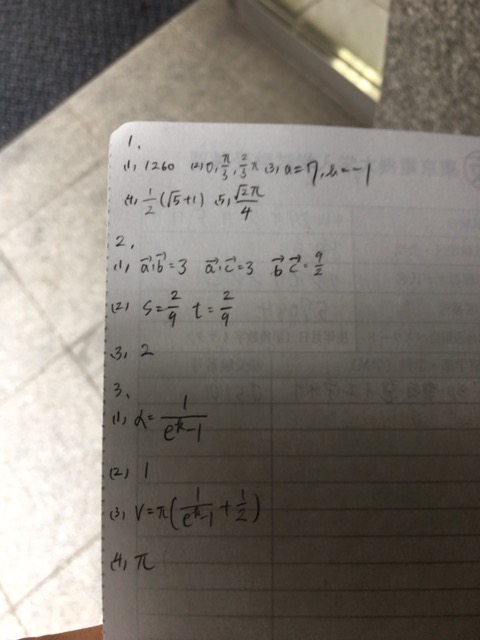 1.
(1) 1260 (2) 0, π/3, 2/3 π (3) a=7, b=-1
(4) 1/2 (√5+1) (5) √2π/4
2.
(1) a⃗·b⃗=3 a⃗·c⃗=3 b⃗ c⃗=9/2
(2) s=2/9 t=2/9
(3) 2
3.
(1) α=1/(e^k-1)
(2) 1
(3) V=π(1/(e^k-1)+1/2)
(4) π